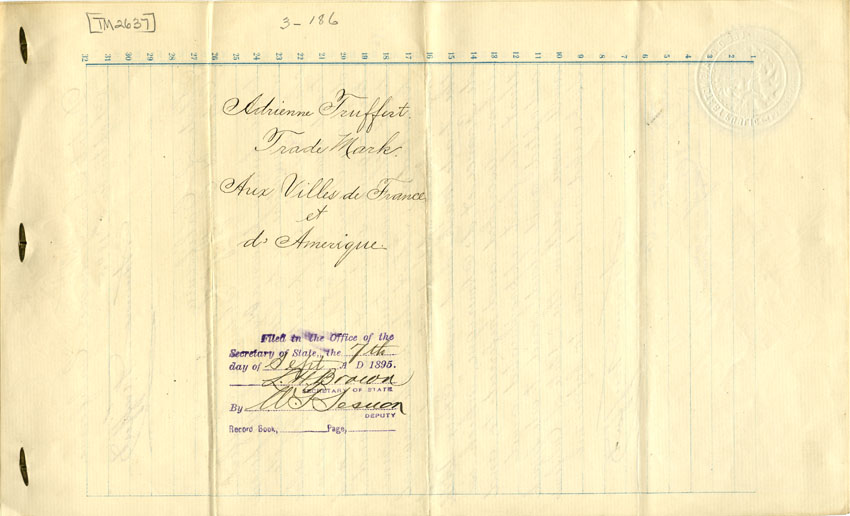 [TM2637]
3-186
32 31 30 29 28 27 26 25 24 23 22 21 20 19 18 17 16 15 14 13 12 11 10 9 8 7 6 5 4 3 2 1
Adrienne Truffert.
Trade Mark.
Aux Villes de France
et
d'Amerique.
Filed in the Office of the
Secretary of State, the 7th
day of Sept A D 1895.
L. H. Brown
SECRETARY OF STATE
By
DEPUTY
Record Book, Page,